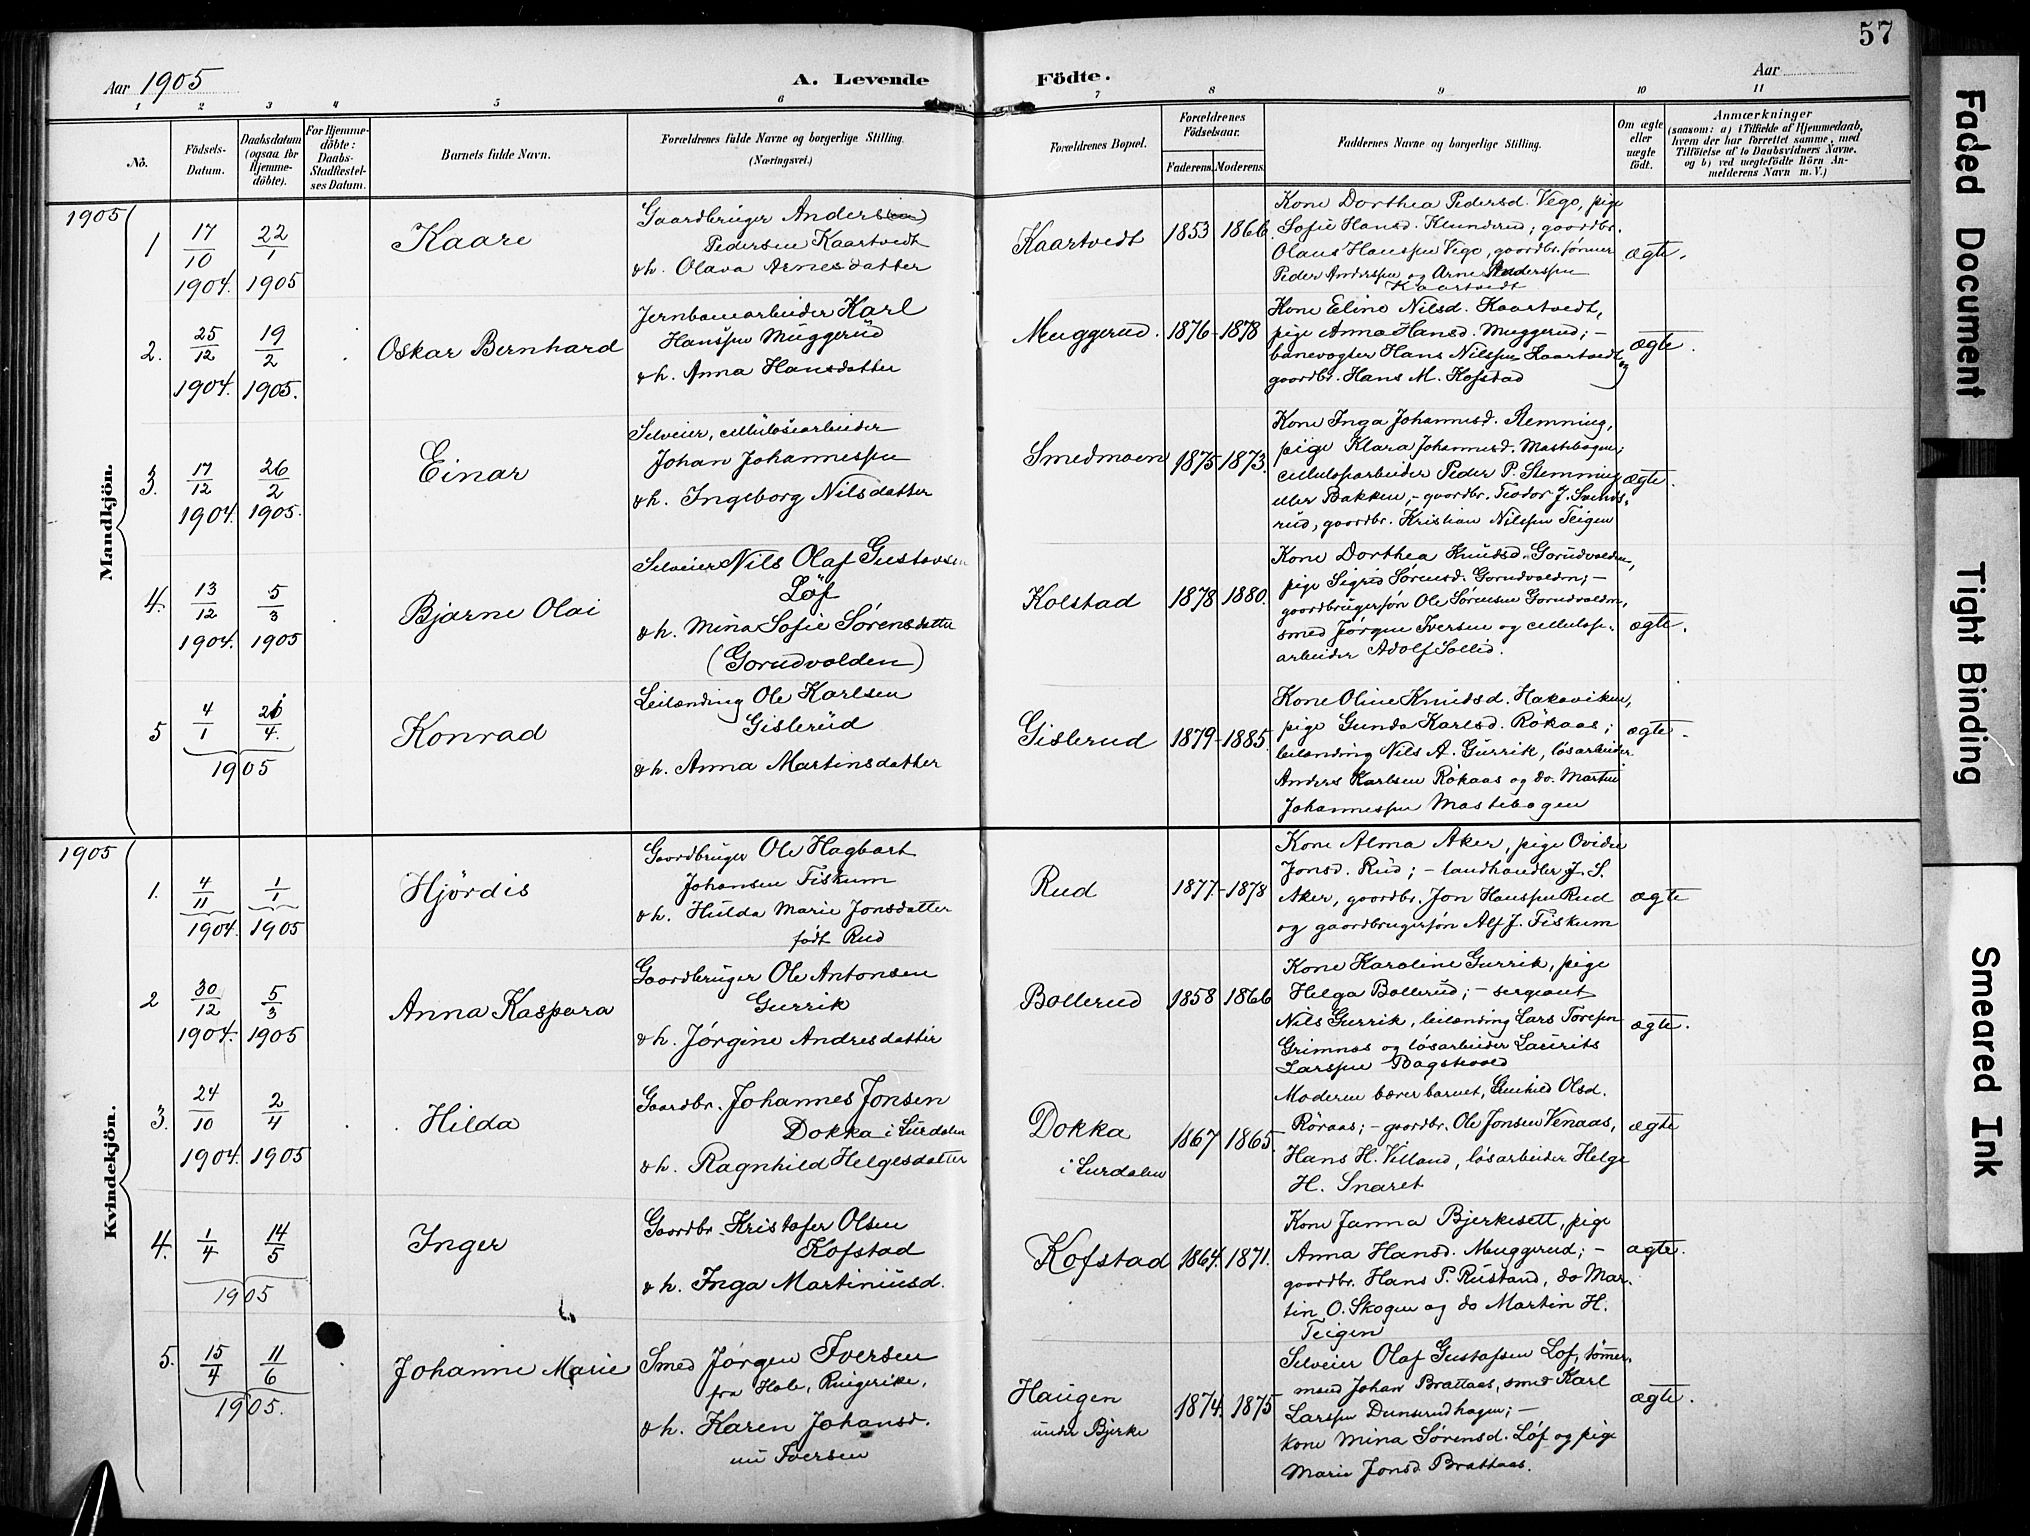 57
Aar 1905
A. Levende Födte.
Aar
1 2 3 4 5 6 7 8 9 10 11
No.
Födsels-Datum.
Daabsdatum (ogsaa for Hjemme-döbte).
For Hjemme-döbte: Daabs-Stadfæstel-ses Datum.
Barnets fulde Navn.
Forældrenes fulde Navne og borgerlige Stilling.
(Næringsvei.)
Forældrenes Bopæl.
Forældrenes Födselsaar.
Faderens. Moderens.
Faddernes Navne og borgerlige Stilling.
Om ægte eller uægte födt.
Anmærkninger
(saasom: a) i Tilfælde af Hjemmedaab,
hvem der har forrettet samme, med
Tilföielse af to Daabsvidners Navne,
og b) ved uegtefödte Börn An-
melderens Navn m. V.)
Mandkjön.
1905
1
17/10 1904.
22/1 1905
Kaare
Gaardbruger Anders
Pedersen Kaartvedt
& h. Olava Arnesdatter
Kaartvedt
1853
1866.
Kone Dorthea Pedersd. Vego, pige
Sofie Hansd. Klunderud; gaardbr.
Olaus Hanssen Vego, gaardbr.sønner
Peder Anderssen og Arne Anderssen
Kaartvedt
ægte.
2.
25/12 1904.
19/2 1905.
Oskar Bernhard
Jernbanearbeider Karl
Hanssen Muggerud
& h. Anna Hansdatter
Muggerud.
1876-
1878
Kone Eline Nilsd. Kaartvedt,
pige Anna Hansd. Muggerud; -
banevogter Hans Nilssen Kaartvedt og
gaardbr. Hans M. Kofstad
ægte.
3.
17/12 1904.
26/2 1905.
Einar
Selveier, cellulosearbeider
Johan Johannessen
& h. Ingeborg Nilsdatter
Smedmoen
1875-
1873.
Kone Inga Johannesd. Stemming,
pige Klara Johannesd. Mastebogen;
cellulosarbeider Peder P. Stemming
eller Bakken, - gaardbr. Teodor J. Svends-
rud, gaardbr. Kristian Nilssen Teigen
ægte.
4.
13/12 1904.
5/3 1905
Bjarne Olai
Selveier Nils Olaf Gustavsen
Löf
& h. Mina Sofie Sørensdatter
(Gorudvolden)
Kolstad
1878
1880.
Kone Dorthea Knudsd. Gorudvolden,
pige Sigrid Sørensd. Gorudvolden; -
gaardbrugersøn Ole Sørensen Gorudvolden,
smed Jørgen Iversen og cellulose-
arbeider Adolf Sollid.
ægte.
5
4/1
26/4.
1905
Konrad
Leilænding Ole Karlsen
Gislerud
& h. Anna Martinsdatter
Gislerud
1879-
1885.
Kone Oline Knudsd. Hakaviken,
pige Gunda Karlsd. Rökaas;
leilænding Nils A. Gurrik, løsarbeider
Anders Karlsen Rökaas og do. Martin
Johannessen Mastebogen
ægte.
Kvindekjön.
1905
1.
4/11 1904.
1/1 1905
Hjördis
Gaardbruger Ole Hagbart
Johansen Fiskum
& h. Hulda Marie Jonsdatter
født Rud
Rud
1877-
1878
Kone Alma Aker, pige Ovidie
Jonsd. Rud; - landhandler J. S.
Aker, gaardbr. Jon Hanssen Rud
og gaardbrugersøn Alf J. Fiskum
ægte
2
30/12 1904.
5/3 1905
Anna Kaspara
Gaardbruger Ole Antonsen
Gurrik
& h. Jørgine Andresdatter
Bollerud
1858
1866
Kone Karoline Gurrik, pige
Helga Bollerud; - sergeant
Nils Gurrik, leilænding Lars Toresen
Grimnas og løsarbeider Laurits
Larssen Bagstevold
ægte.
3.
24/10 1904.
2/4 1905
Hilda
Gaardbr. Johannes Jonsen
Dokka i Surdalen
& h. Ragnhild Helgesdatter
Dokka
i Surdalen
1867
1865.
Moderen bærer barnet, Gunhild Olsd.
Röraas; - gaardbr. Ole Jonsen Venaas,
Hans H. Villand, løsarbeider Helge
H. Snaret
ægte
4.
1/4
14/5
1905
Inger
Gaardbr. Kristofer Olsen
Kofstad
& h. Inga Martiniusd.
Kofstad
1864.
1871.
Kone Janna Bjerkesett, pige
Anna Hansd. Muggerud; -
gaardbr. Hans P. Rustand, do Mar-
tin O. Skogen og do Martin H.
Teigen
ægte.
5.
15/4
11/6
1905.
Johanne Marie
Smed Jørgen Iversen
fra Hole, Ringerike,
& h. Karen Johansd.
nu Iversen
Haugen
under Bjerke
1874.
1875
Selveier Olaf Gustafsen Löf, tømmer-
mand Johan Brattaas, smed Karl
Larssen Dunserudhagen; -
kone Mina Sørensd. Löf og pige
Marie Jonsd. Brattaas.
ægte.
Faded Document
Tight Binding
Smeared Ink